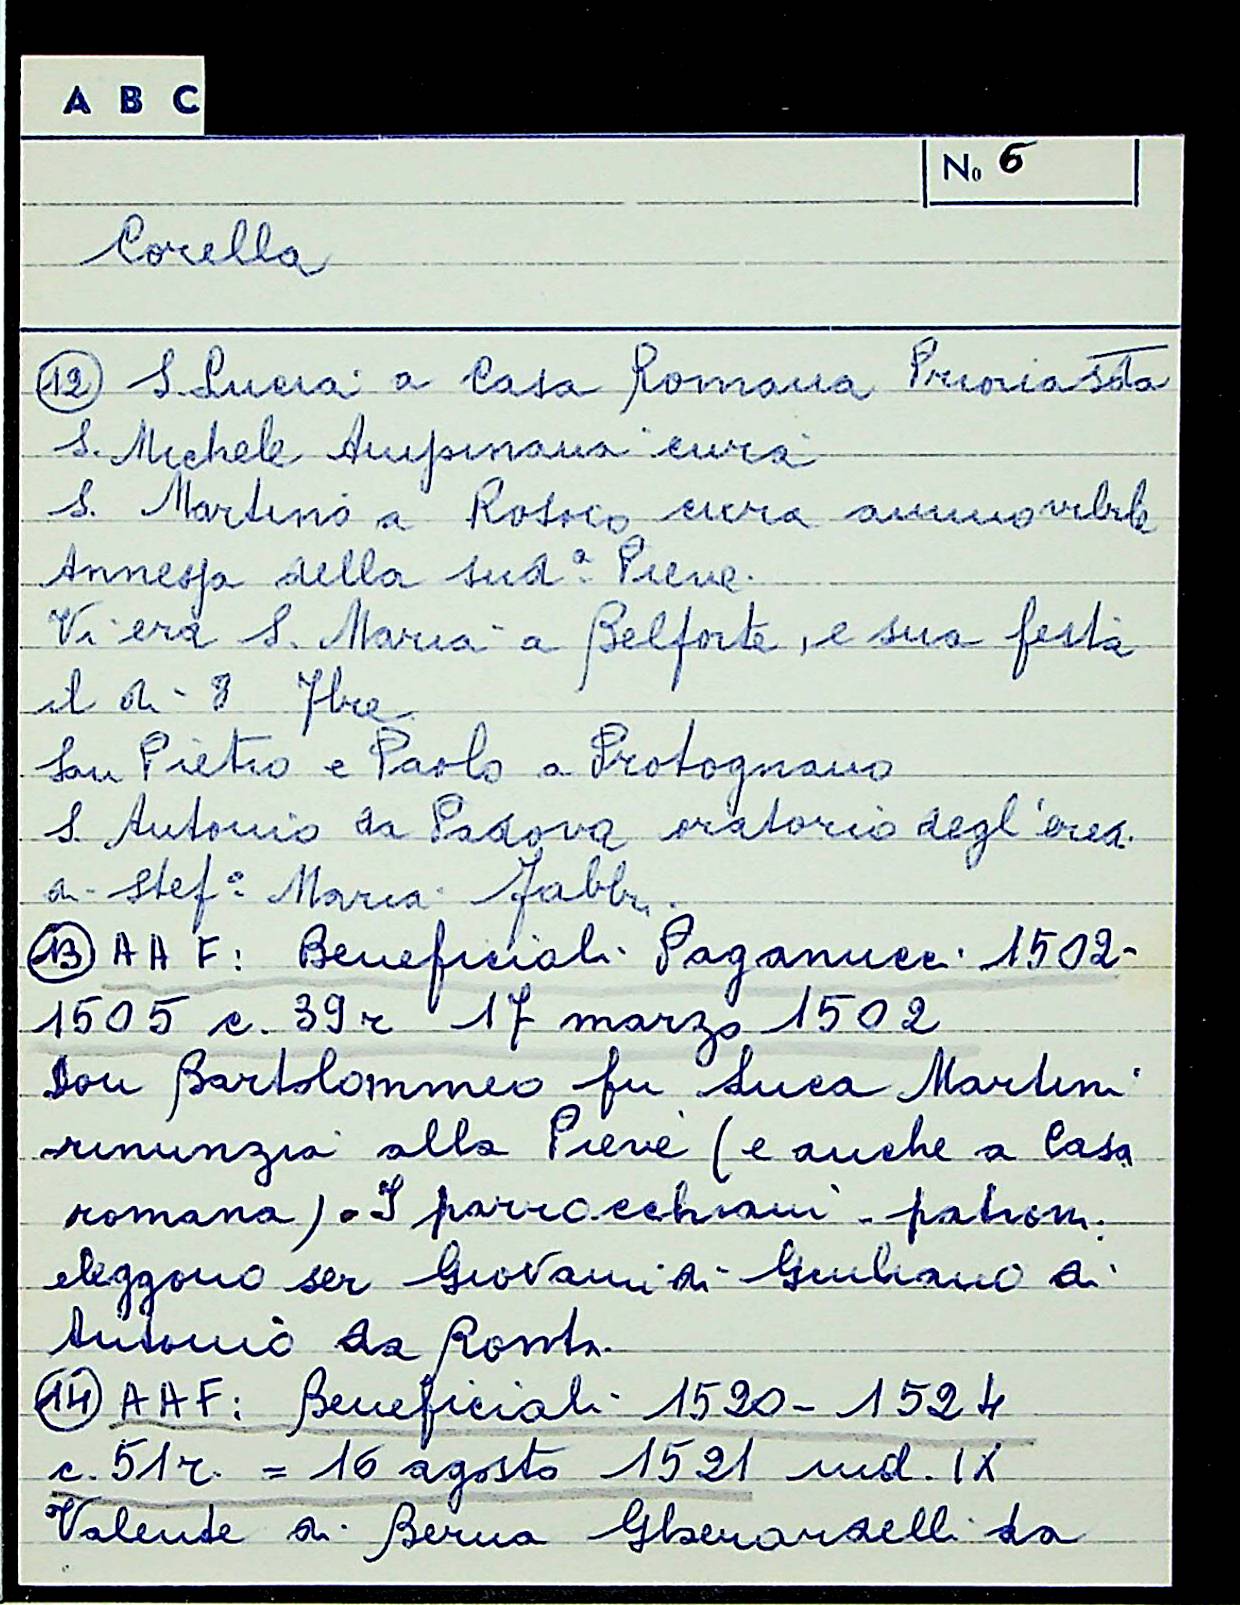 A B C
No 6
Corella
(12) S. Lucia a Casa Romana Prioria sta
S. Michele Ampinana cura
S. Martino a Rosoio cura ammovibile
Annessa della sud.a Pieve.
Vi era S. Maria a Belforte, e sua festa
il di 8 7bre
San Pietro e Paolo a Protognano
S. Antonio da Padova oratorio degl'ered.
di Stef.o Maria Fabbri.
(13) A A F: Beneficiali Paganucci 1502-
1505 c. 39r 17 marzo 1502
Don Bartolommeo fu Luca Martini
rinunzia alla Pieve (e anche a Casa
romana). I parrocchiani - patroni
eleggono ser Giovanni di Giuliano di
Antonio da Ronta.
(14) A A F: Beneficiali 1520-1524
c. 51r. = 16 agosto 1521 ind. IX
Valente di Berna Gherardelli da